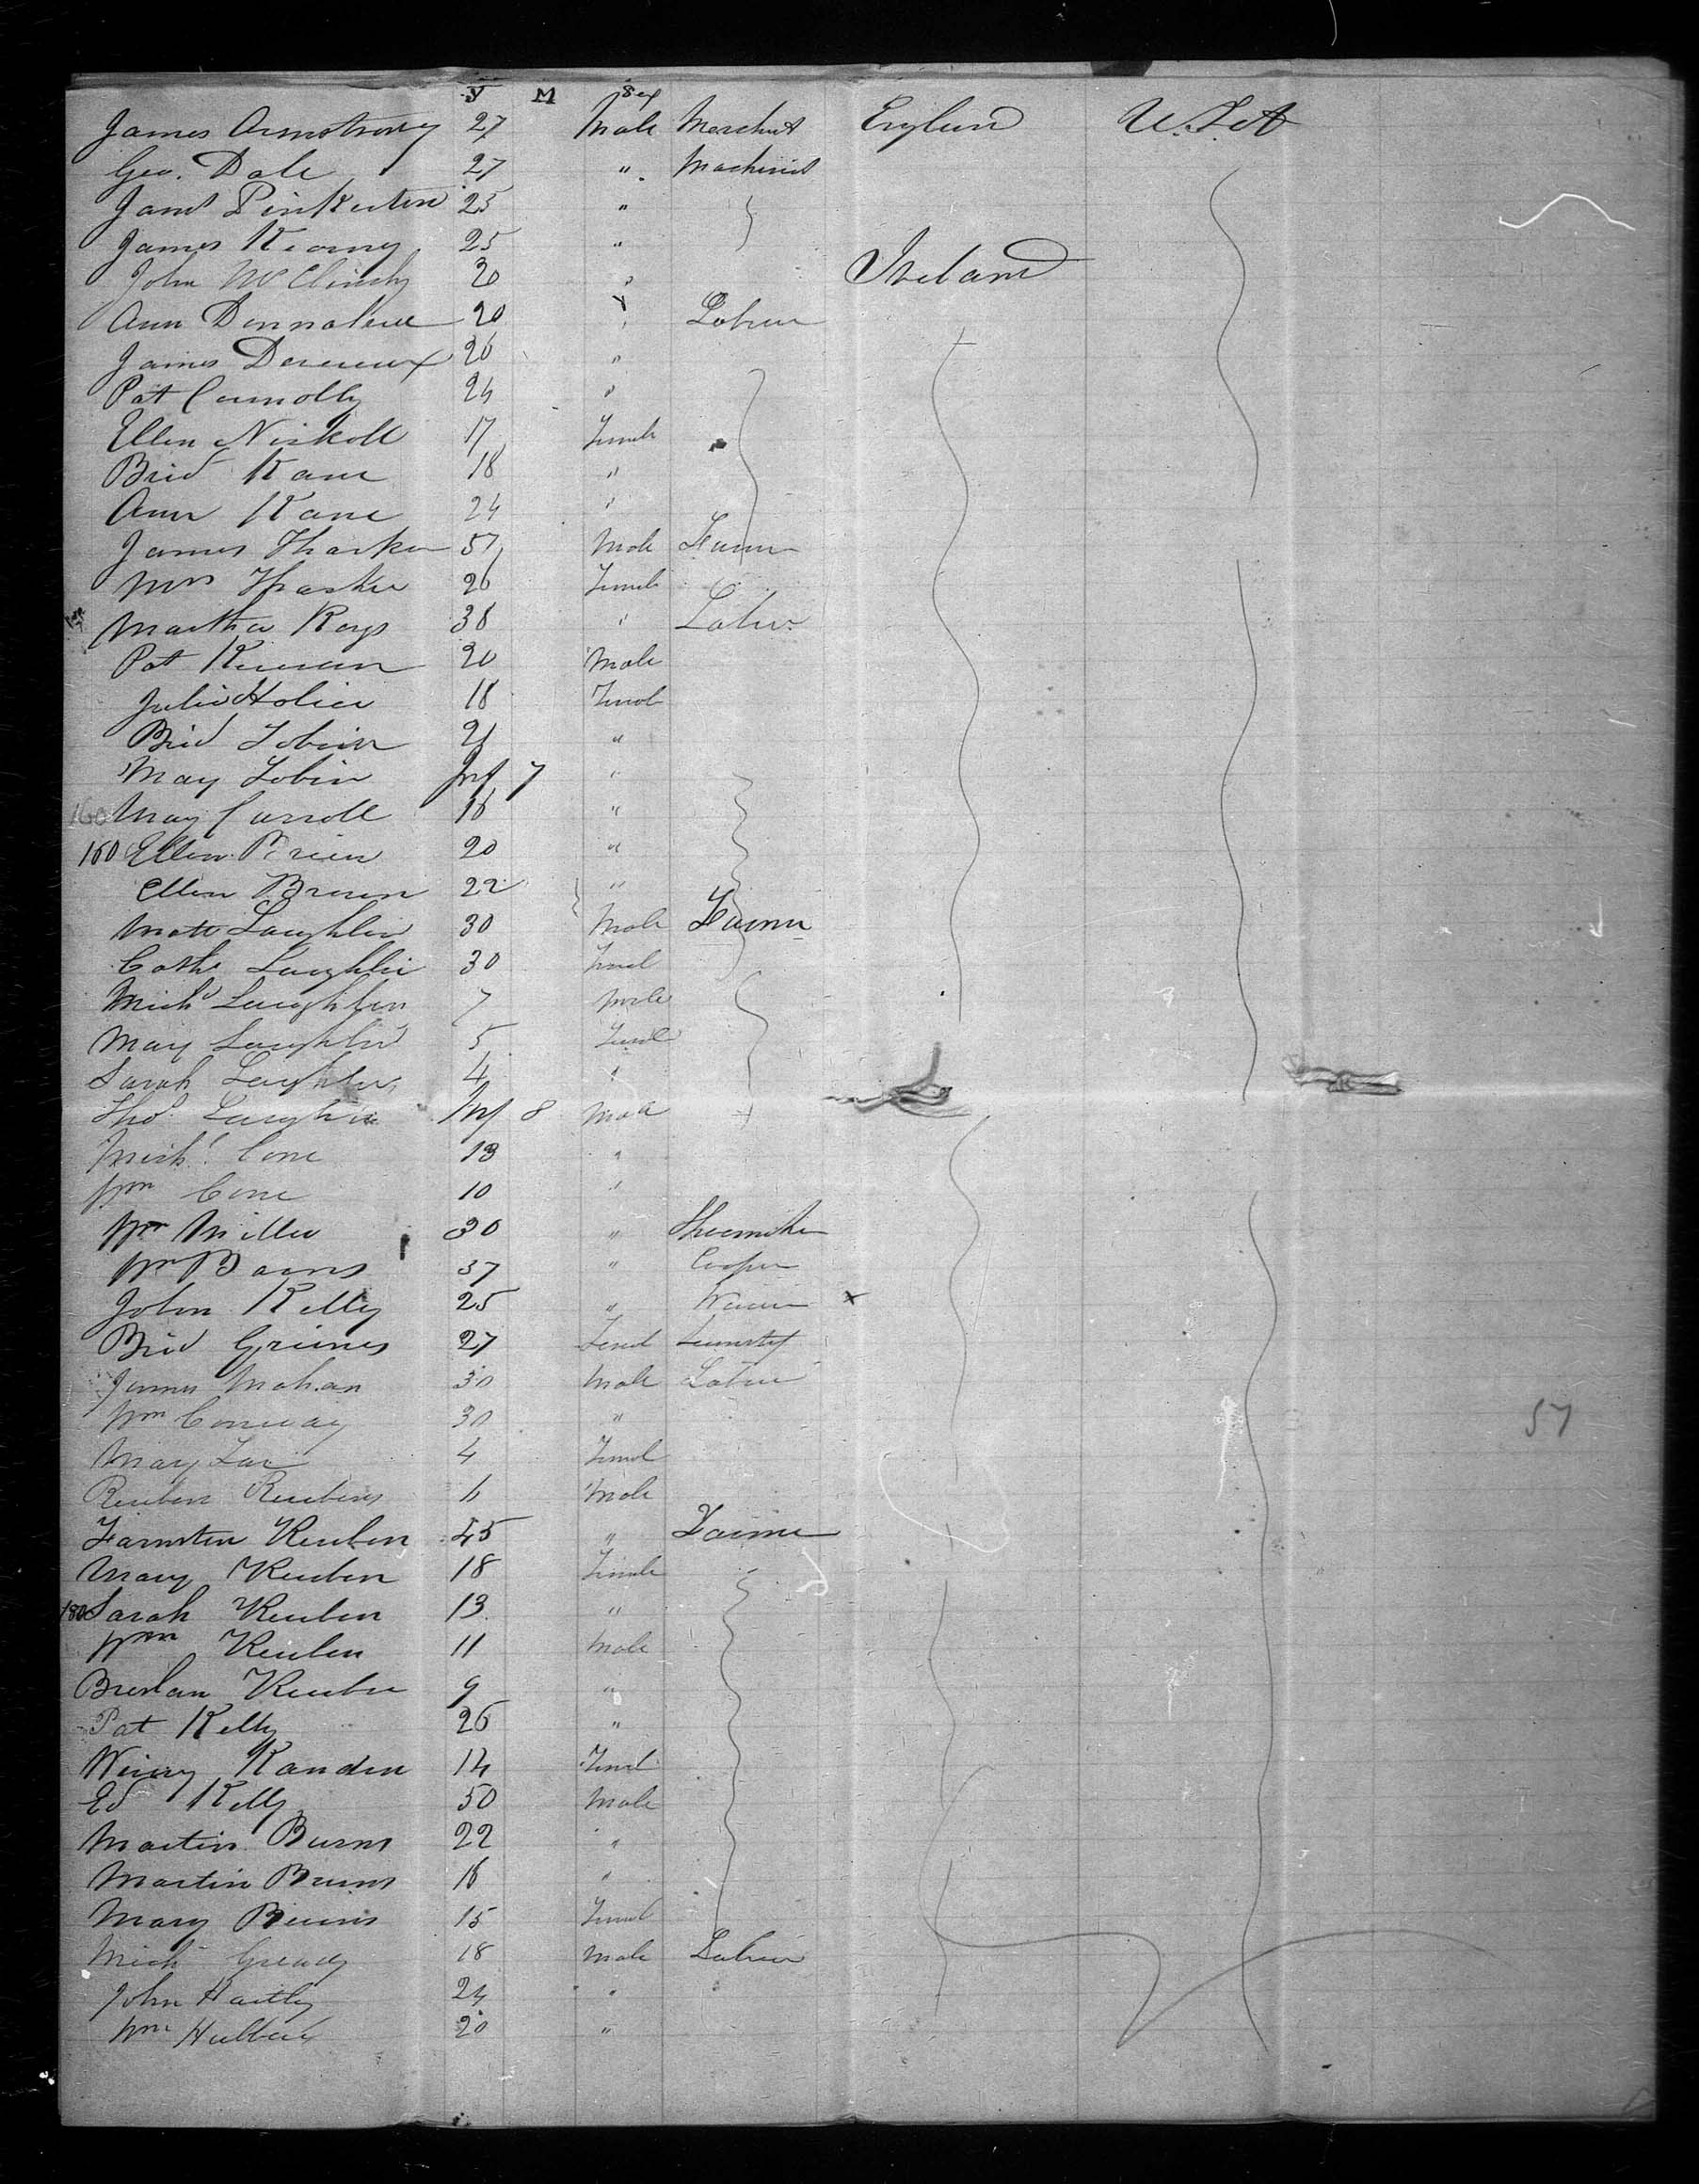 Y M Sex
James Armstrong 27 Male Merchant England U.S.A
Geo. Dale 27 " Machinist
James Pinkerton 25 "
James Kearny 25 "
John McClinchy 20 " Ireland
Ann Donnahue 20 Y Labrer
James Devereux 26 "
Pat Connolly 24 "
Ellen 17 Femle
Brid Kane 18 "
Ann Kane 24 "
James Tharker 57 Male Farmer
Mrs Tharker 26 Femle
Martha Keys 38 " Labrer
Pat 20 Male
Julia 18 Femal
Brid Tobin 21 "
May Tobin Inf 7 "
160 May Carroll 16 "
160 Ellen Brien 20 "
Ellen Brown 22 "
Matt Laughlin 30 Male Farmer
Cath Laughlin 30 Femal
Michl Laughlin 7 Male
Mary Laughlin 5 Femal
Sarah Laughlin 4 "
Thos Laughlin Inf 8 Male
Michl Cone 13 "
Wm Cone 10 "
Wm Miller 30 " Shoemaker
Wm Barns 37 " Cooper
John Kelly 25 " x
Brid Grimes 27 Femal
James Mohan 30 Male Labrer
Wm Conway 30 "
57
Mary 4 Femal
Reuben Reubens 6 Male
Reuben 45 " Farmer
Mary Reuben 18 Female
180 Sarah Reuben 13 "
Wm Reuben 11 Male
Reuben 9 "
Pat Kelly 26 "
Winny 14 Femal
Ed Kelly 50 Male
Martin Burns 22 "
Martin Burns 16 "
Mary Burns 15 Femal
Mich Gready 18 Male Labrer
John Hartly 24 "
Wm 20 "